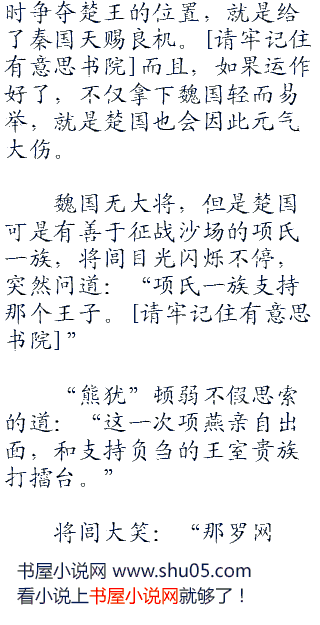 时争夺楚王的位置，就是给
了秦国天赐良机。[请牢记住
有意思书院]而且，如果运作
好了，不仅拿下魏国轻而易
举，就是楚国也会因此元气
大伤。
魏国无大将，但是楚国
可是有善于征战沙场的项氏
一族，将闾目光闪烁不停，
突然问道：“项氏一族支持
那个王子。[请牢记住有意思
书院]”
“熊犹”顿弱不假思索
的道：“这一次项燕亲自出
面，和支持负刍的王室贵族
打擂台。”
将闾大笑：“那罗网
书屋小说网 www.shu05.com
看小说上书屋小说网就够了！